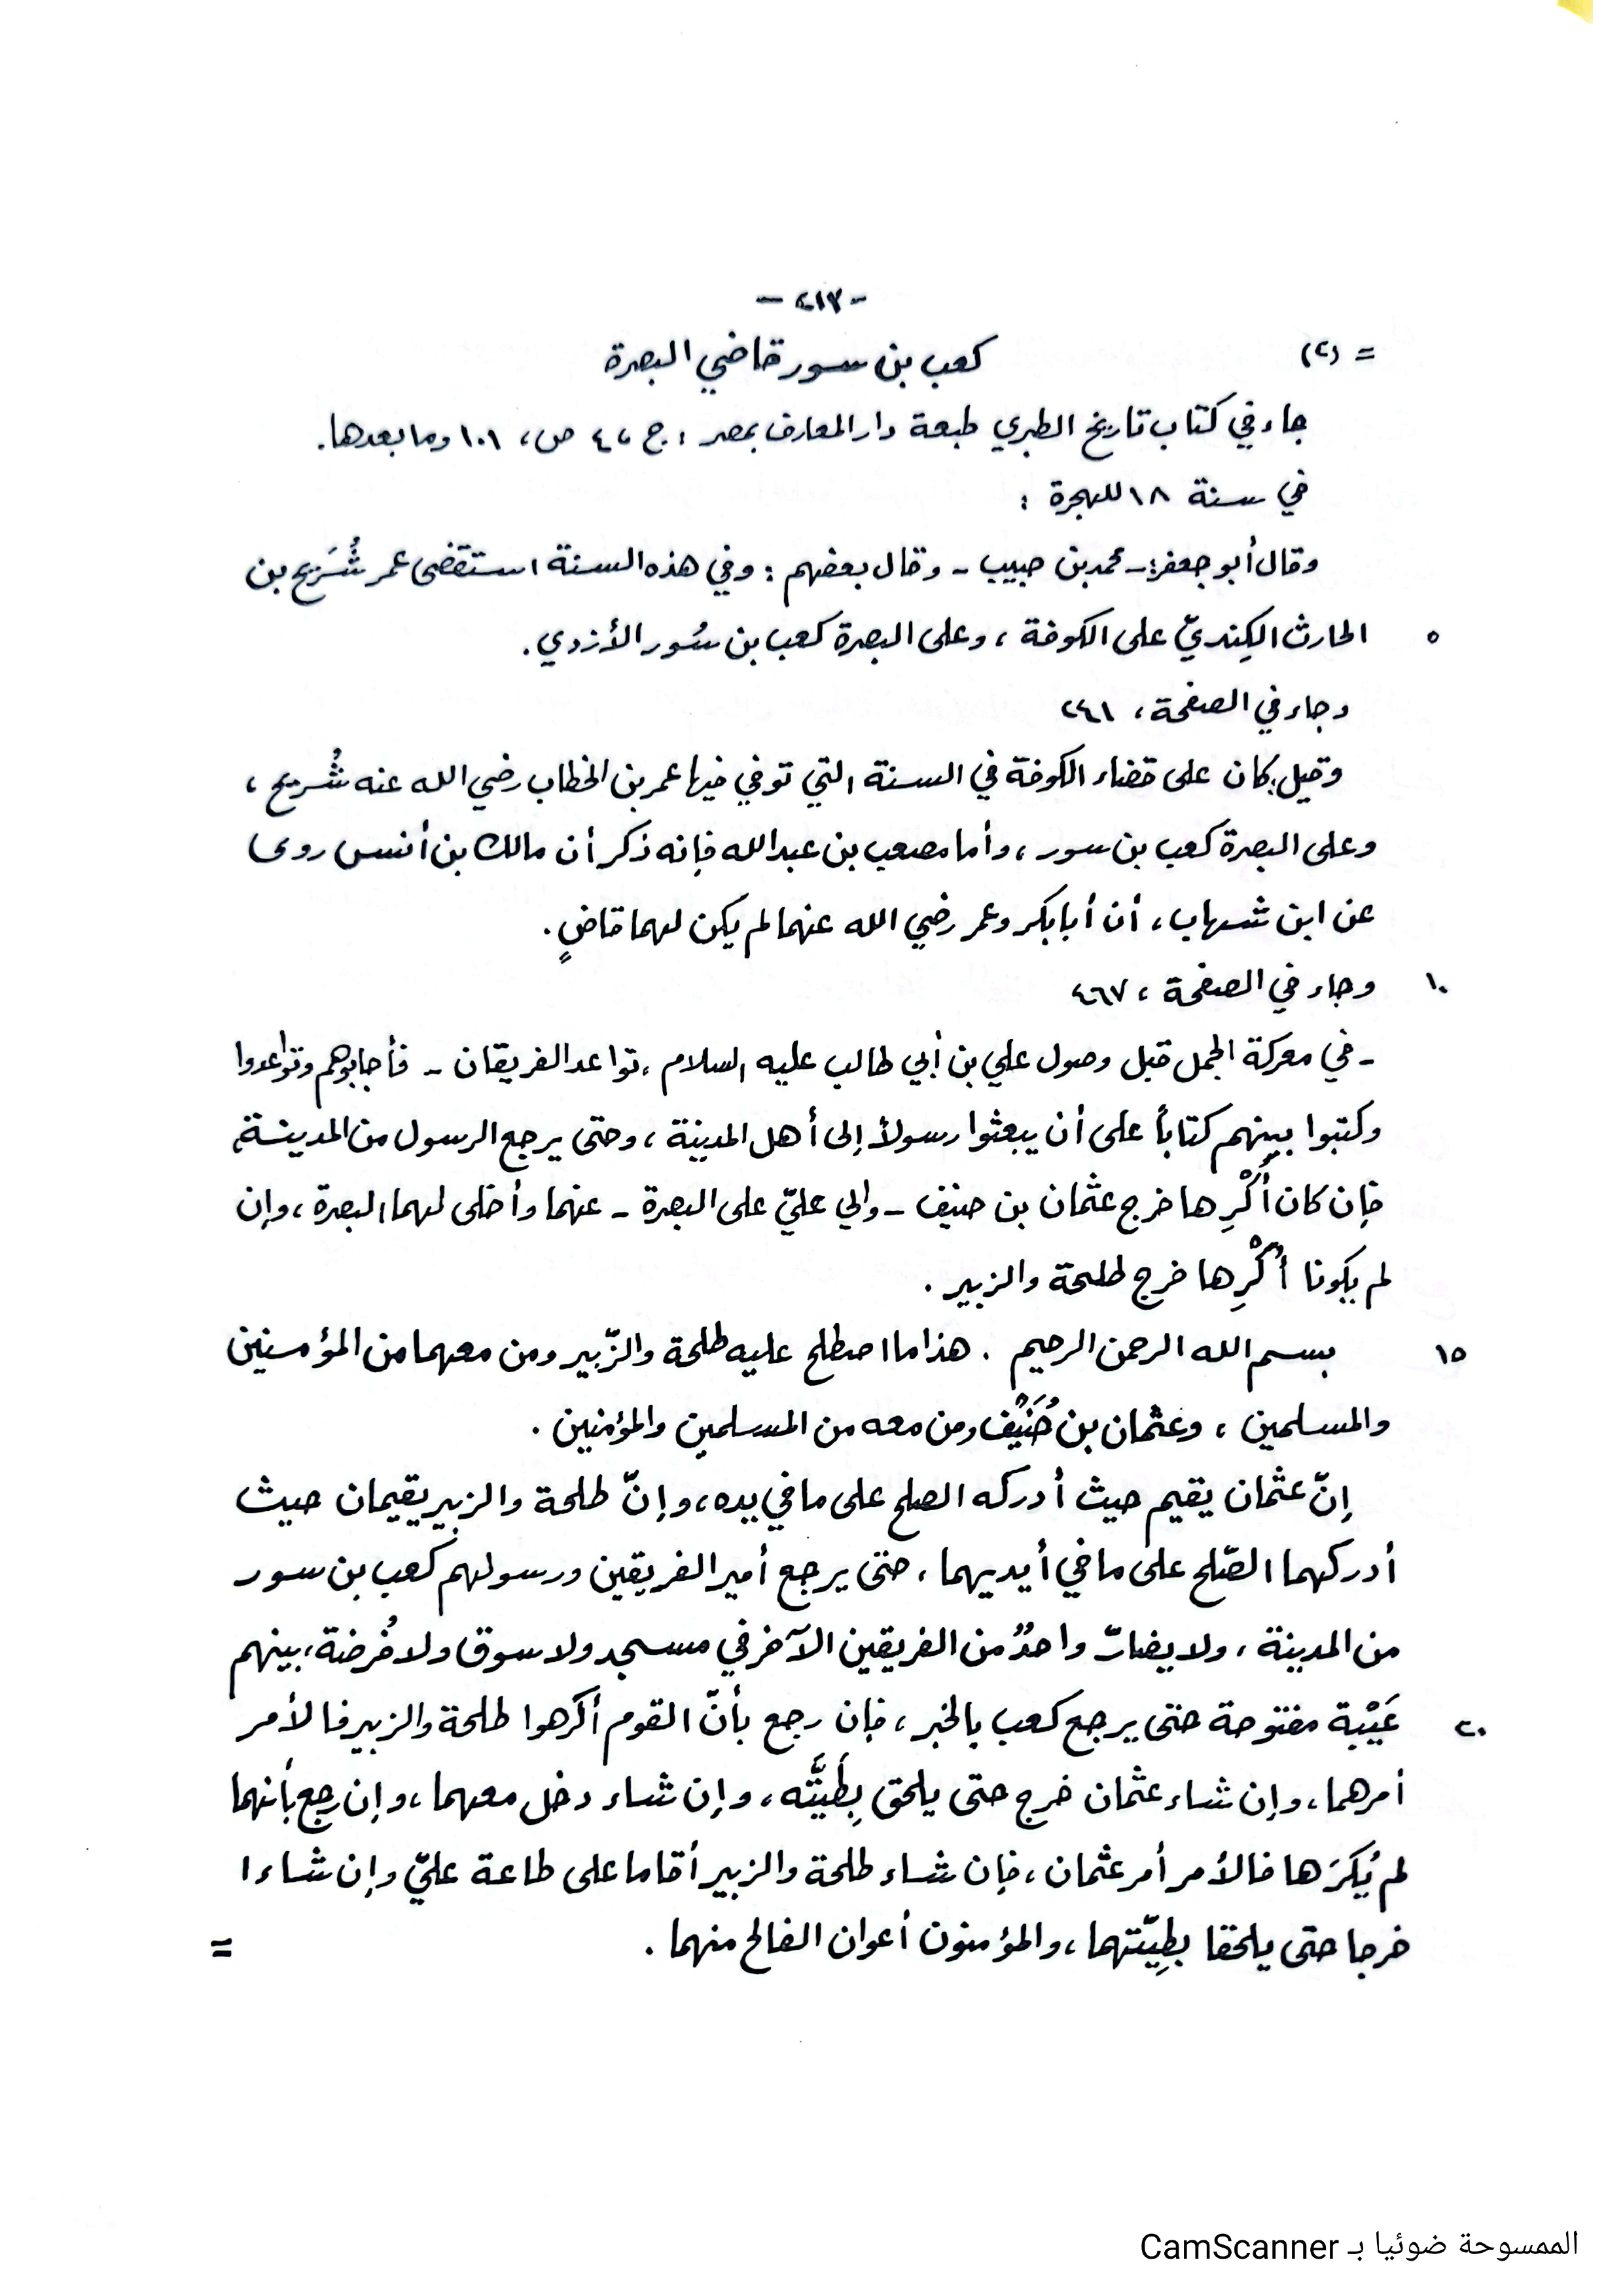 - ٤١٣ -
= (٢) كعب بن سور قاضي البصرة
جاء في كتاب تاريخ الطبري طبعة دار المعارف بمصر : ج ٤، ص، ١٠١ وما بعدها.
في سنة ١٨ للهجرة :
وقال أبو جعفر: - محمد بن حبيب - وقال بعضهم : وفي هذه السنة استقضى عمر شُرَيح بن
٥ الحارث الكِنديّ على الكوفة ، وعلى البصرة كعب بن سُور الأزدي .
وجاء في الصفحة ، ٢٤١
وقيل كان على قضاء الكوفة في السنة التي توفي فيها عمر بن الخطاب رضي الله عنه شُريح ،
وعلى البصرة كعب بن سور ، وأما مصعب بن عبد الله فإنه ذكر أن مالك بن أنس روى
عن ابن شهاب ، أن أبا بكر وعمر رضي الله عنهما لم يكن لهما قاضٍ .
١٠ وجاء في الصفحة ، ٤٦٧
- في معركة الجمل قبل وصول علي بن أبي طالب عليه السلام ، تواعد الفريقان - فأجابوهم وتواعدوا
وكتبوا بينهم كتاباً على أن يبعثوا رسولاً إلى أهل المدينة ، وحتى يرجع الرسول من المدينة ،
فإن كان أُكْرِها خرج عثمان بن حنيف - والي عليّ على البصرة - عنهما وأخلى لهما البصرة ، وإن
لم يكونا أُكْرِها خرج طلحة والزبير .
١٥ بسم الله الرحمن الرحيم . هذا ما اصطلح عليه طلحة والزّبير ومن معهما من المؤمنين
والمسلمين ، وعثمان بن حُنَيْف ومن معه من المسلمين والمؤمنين .
إنّ عثمان يقيم حيث أدركه الصلح على ما في يده ، وإنّ طلحة والزبير يقيمان حيث
أدركهما الصّلح على ما في أيديهما ، حتى يرجع أمير الفريقين ورسولهم كعب بن سور
من المدينة ، ولا يضارّ واحدٌ من الفريقين الآخر في مسجد ولا سوق ولا فُرضة ، بينهم
٢٠ عَيْبة مفتوحة حتى يرجع كعب بالخبر ، فإن رجع بأنّ القوم أكرهوا طلحة والزبير فالأمر
أمرهما ، وإن شاء عثمان خرج حتى يلحق بِطَيَّتَّه ، وإن شاء دخل معهما ، وإن رجع بأنهما
لم يُكرَها فالأمر أمر عثمان ، فإن شاء طلحة والزبير أقاما على طاعة عليّ وإن شاءا
خرجا حتى يلحقا بطِيّتهما ، والمؤمنون أعوان الفالح منهما . =
الممسوحة ضوئيا بـ CamScanner